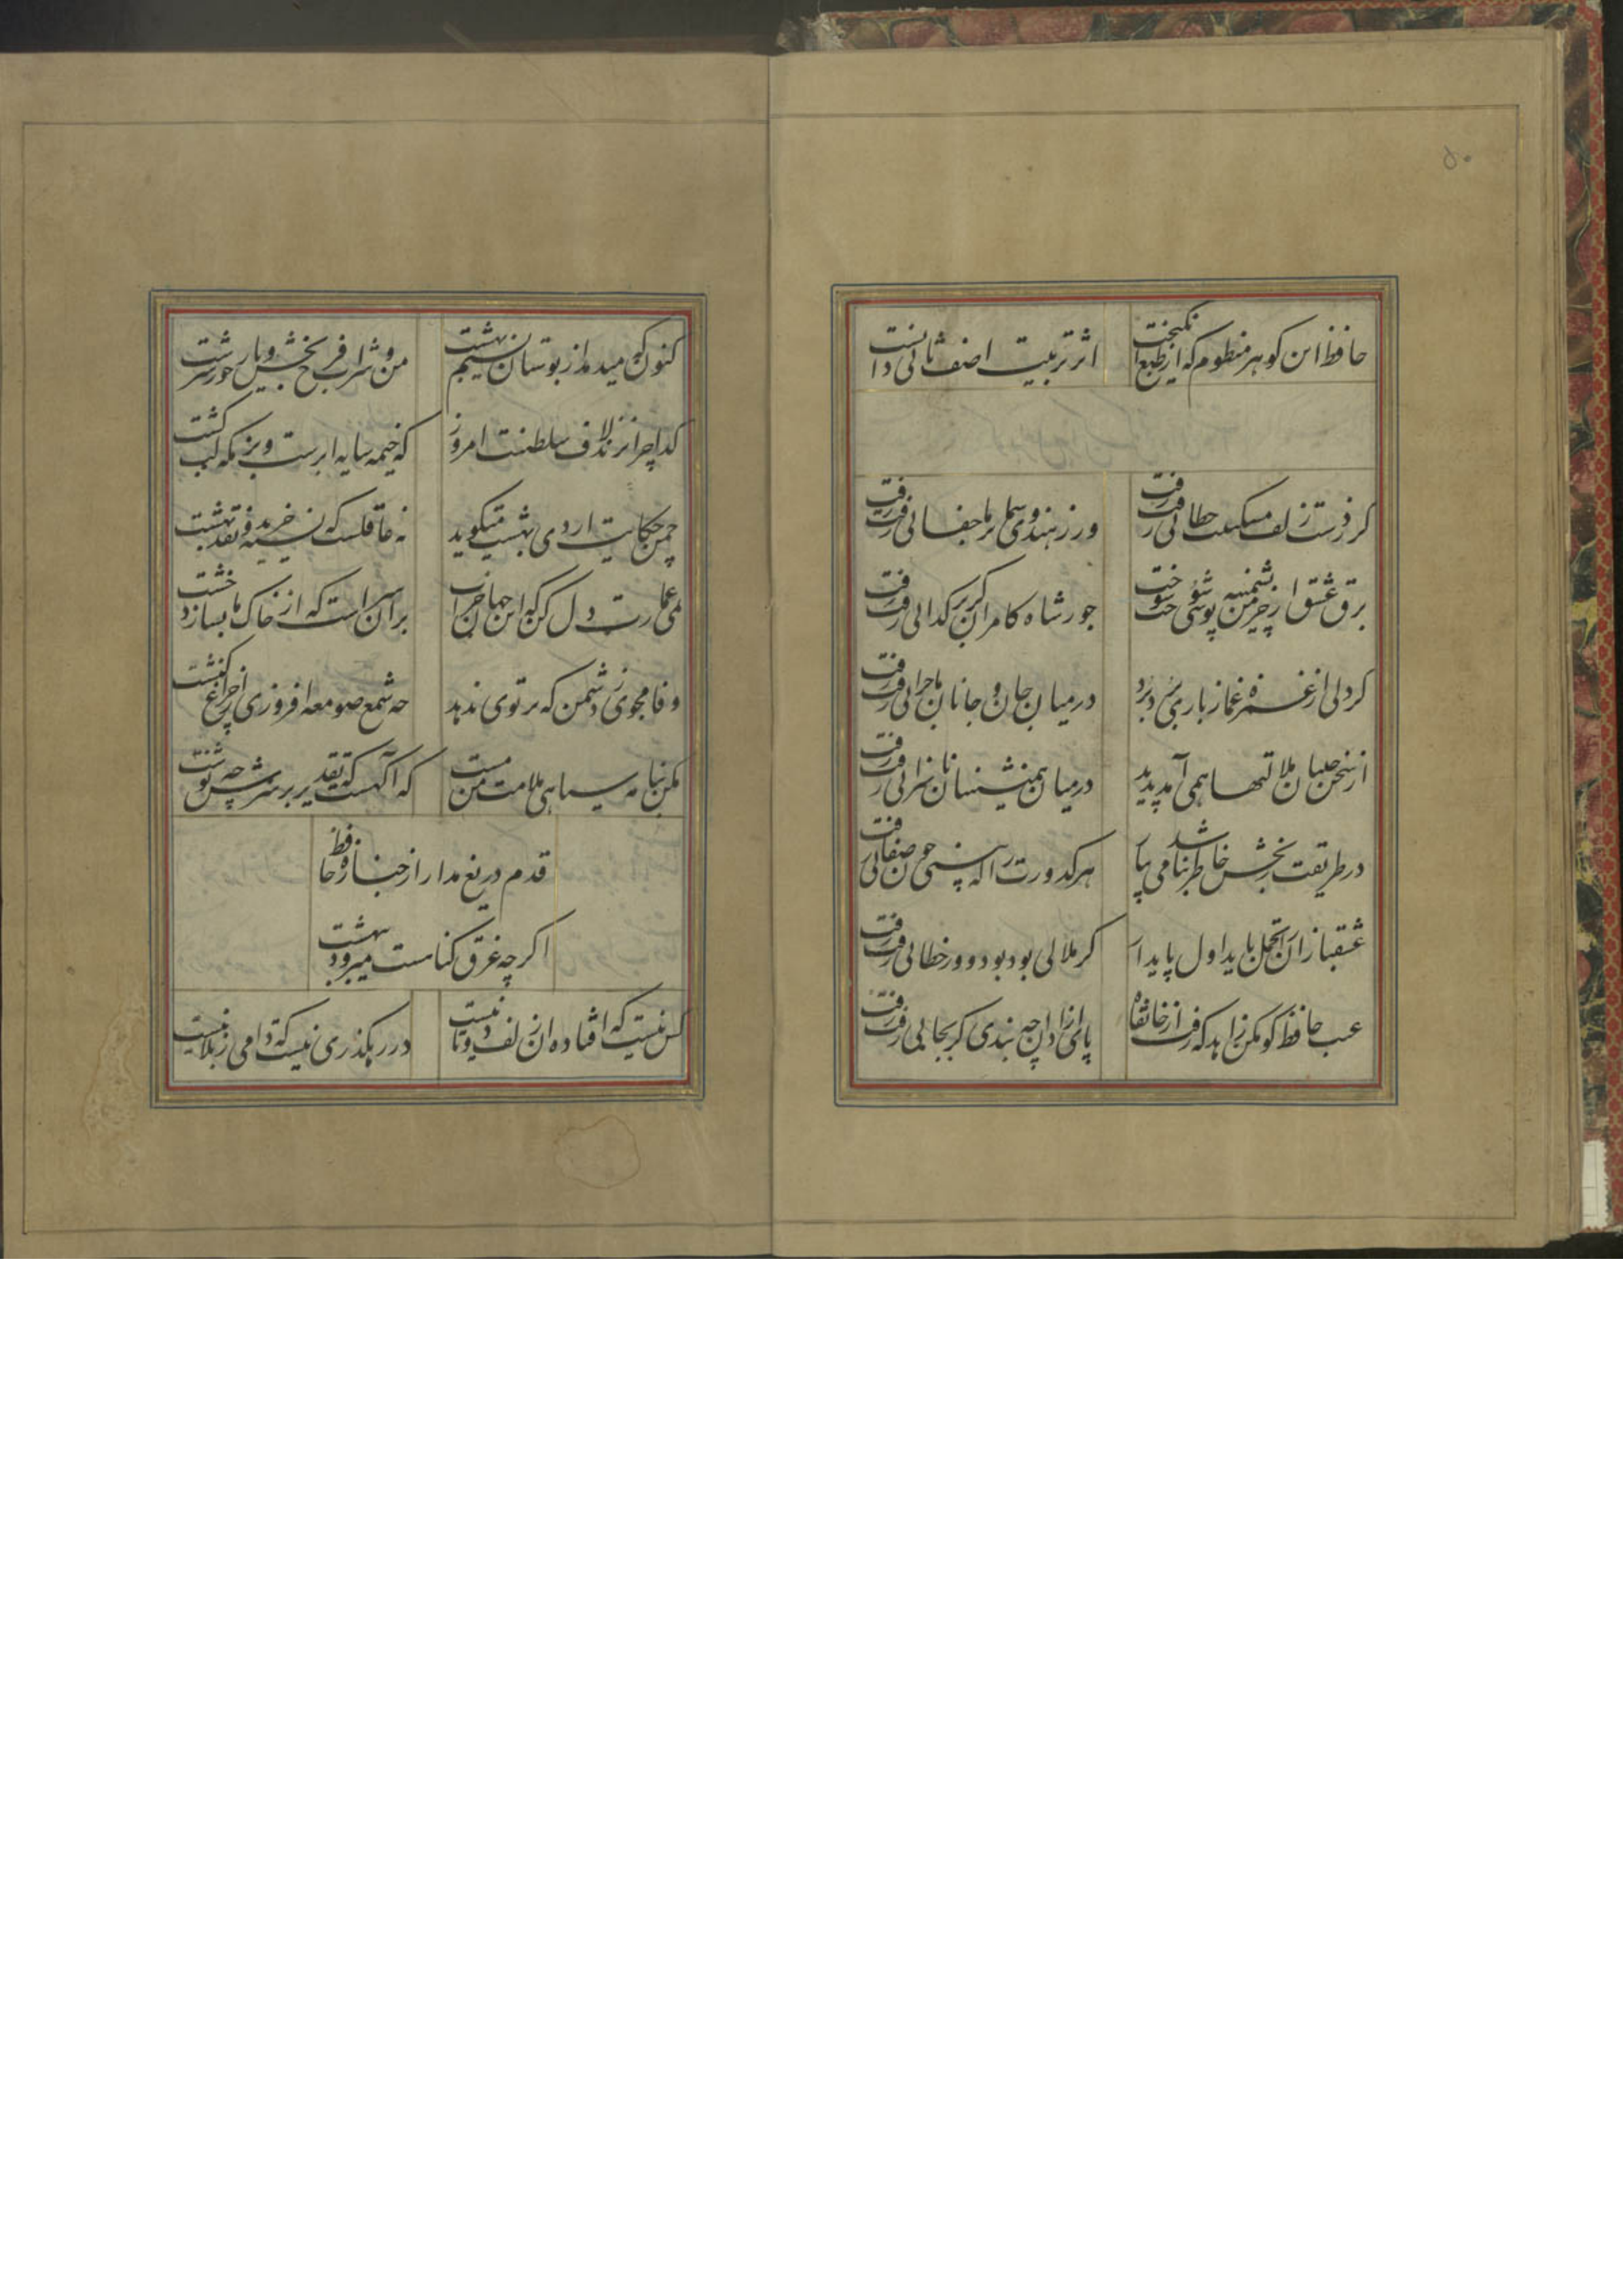 ۵۰
حافظ این کوهر منظوم که از طبع انکیخت
اثر تربیت اصف ثانی دانست
کر ز دست زلف مسکینت خطائی رفت رفت
ور ز هندوی شما بر ما جفائی رفت رفت
برق عشق ار خرمن پشمینه پوشی سوخت سوخت
جور شاه کامران کر بر کدائی رفت رفت
کر دلی از غمزه غماز باری برد برد
در میان جان و جانان ماجرائی رفت رفت
از سخن چینان ملالتها همی آمد پدید
در میان همنشینان ناسزائی رفت رفت
در طریقت رنجش خاطر نباشد می بیار
هر کدورت را که بینی چون صفائی رفت
عشقبازان را تحمل باید اول پایدار
کر ملالی بود بود و ور خطائی رفت رفت
عیب حافظ کو مکن زاهد که رفت از خانقاه
پای ازادان چه بندی کر بجایی رفت رفت
کنون که میدمد از بوستان نسیم بهشت
من و شراب فرح بخش و یار حور سرشت
کدا چرا نزند لاف سلطنت امروز
که خیمه سایه ابرست و بزمکه لب کشت
چمن حکایت اردی بهشت میکوید
نه عاقلست که نسیه خرید و نقد بهشت
بمی عمارت دل کن که این جهان خراب
بر آن سر است که از خاک ما بسازد خشت
وفا مجوی ز دشمن که پرتوی ندهد
چه شمع صومعه افروزی از چراغ کنشت
مکن بنامه سیاهی ملامت من مست
که آکهست که تقدیر بر سرش چه نوشت
قدم دریغ مدار از جنازه حافظ
اکر چه غرق کناهست میرود ببهشت
کس نیست که افتاده ان زلف دوتا نیست
در رهکذری نیست که دامی ز بلا نیست